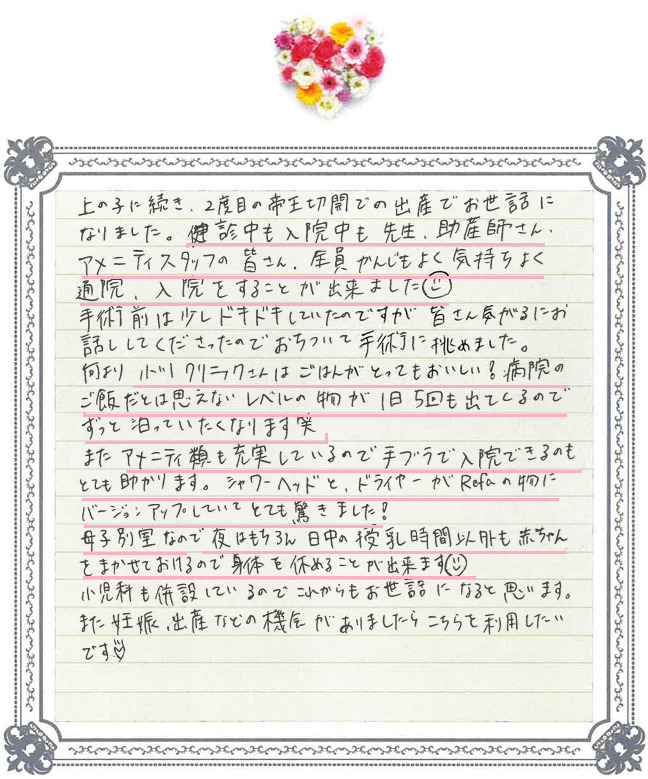 上の子に続き、2度目の帝王切開での出産でお世話に
なりました。健診中も入院中も先生、助産師さん、
アメニティスタッフの皆さん、全員かんじもよく気持ちよく
通院、入院をすることが出来ました
手術前は少しドキドキしていたのですが皆さん気がるにお
話ししてくださったのでおちついて手術に挑めました。
何より小川クリニックさんはごはんがとってもおいしい!病院の
ご飯だとは思えないレベルの物が1日5回も出てくるので
ずっと泊っていたくなります笑
またアメニティ類も充実しているので手ブラで入院できるのも
とても助かります。シャワーヘッドと、ドライヤーがRefaの物に
バージョンアップしていてとても驚きました!
母子別室なので夜はもちろん日中の授乳時間以外も赤ちゃん
をまかせておけるので身体を休めることが出来ます
小児科も併設しているのでこれからもお世話になると思います。
また妊娠、出産などの機会がありましたらこちらを利用したい
です♡